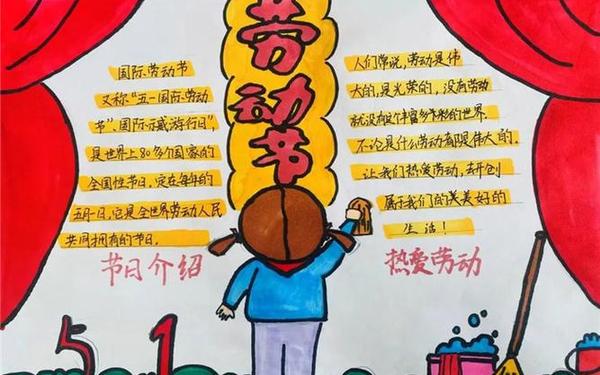 劳动节
国际劳动节
又称"五一国际劳动
节""国际示威游行日",
是世界上80多个国家的
全国性节日,定在每年的
五月一日,它是全世界劳动人民
共同拥有的节日。
节日介绍
人们常说,劳动是伟
大的,是光荣的,没有劳动
就没有这个丰富多彩的世界.
不论是什么劳动伟大的.
让我们热爱劳动,去开创
属于我们的美美好的
生活!
热爱劳动
5 1